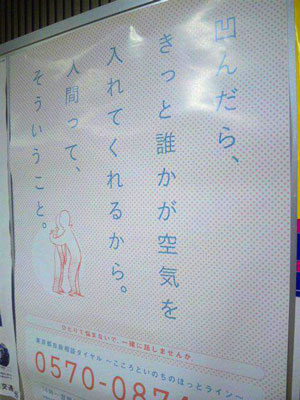 凹んだら、
きっと誰かが空気を
入れてくれるから。
人間って、
そういうこと。
ひとりで悩まないで、一緒に話しませんか。
東京都自殺相談ダイヤル ―こころといのちのほっとライン―
0570-087